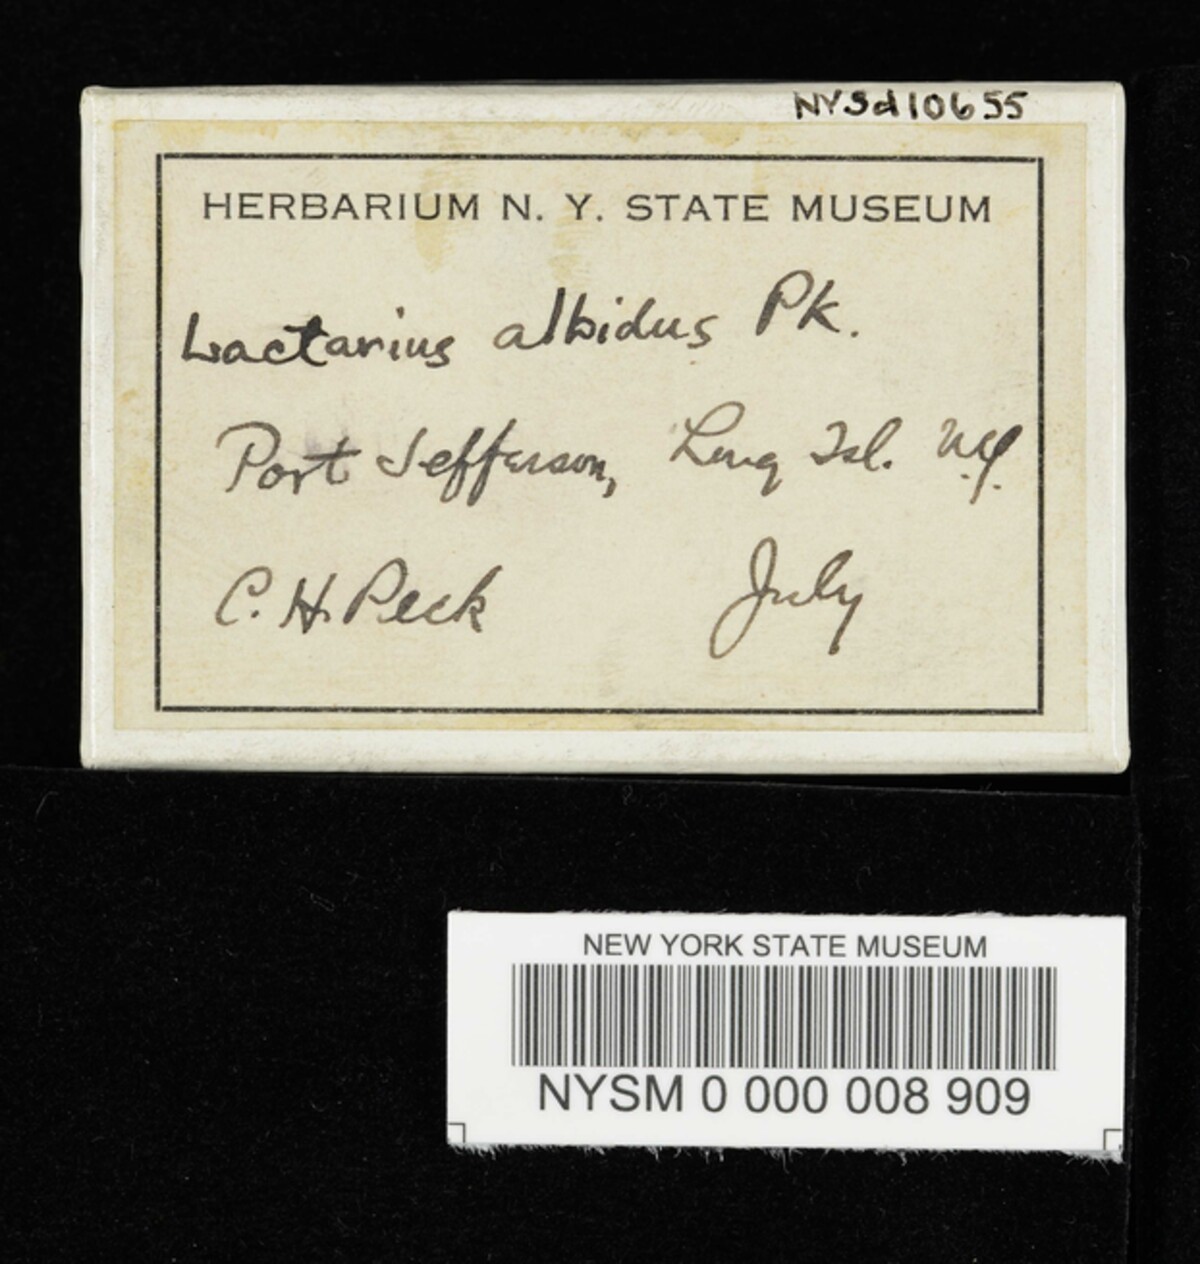 NYSd10655
HERBARIUM N. Y. STATE MUSEUM
Lactarius albidus Pk.
Port Jefferson, Long Isl. N.Y.
C. H. Peck July
NEW YORK STATE MUSEUM
NYSM 0 000 008 909